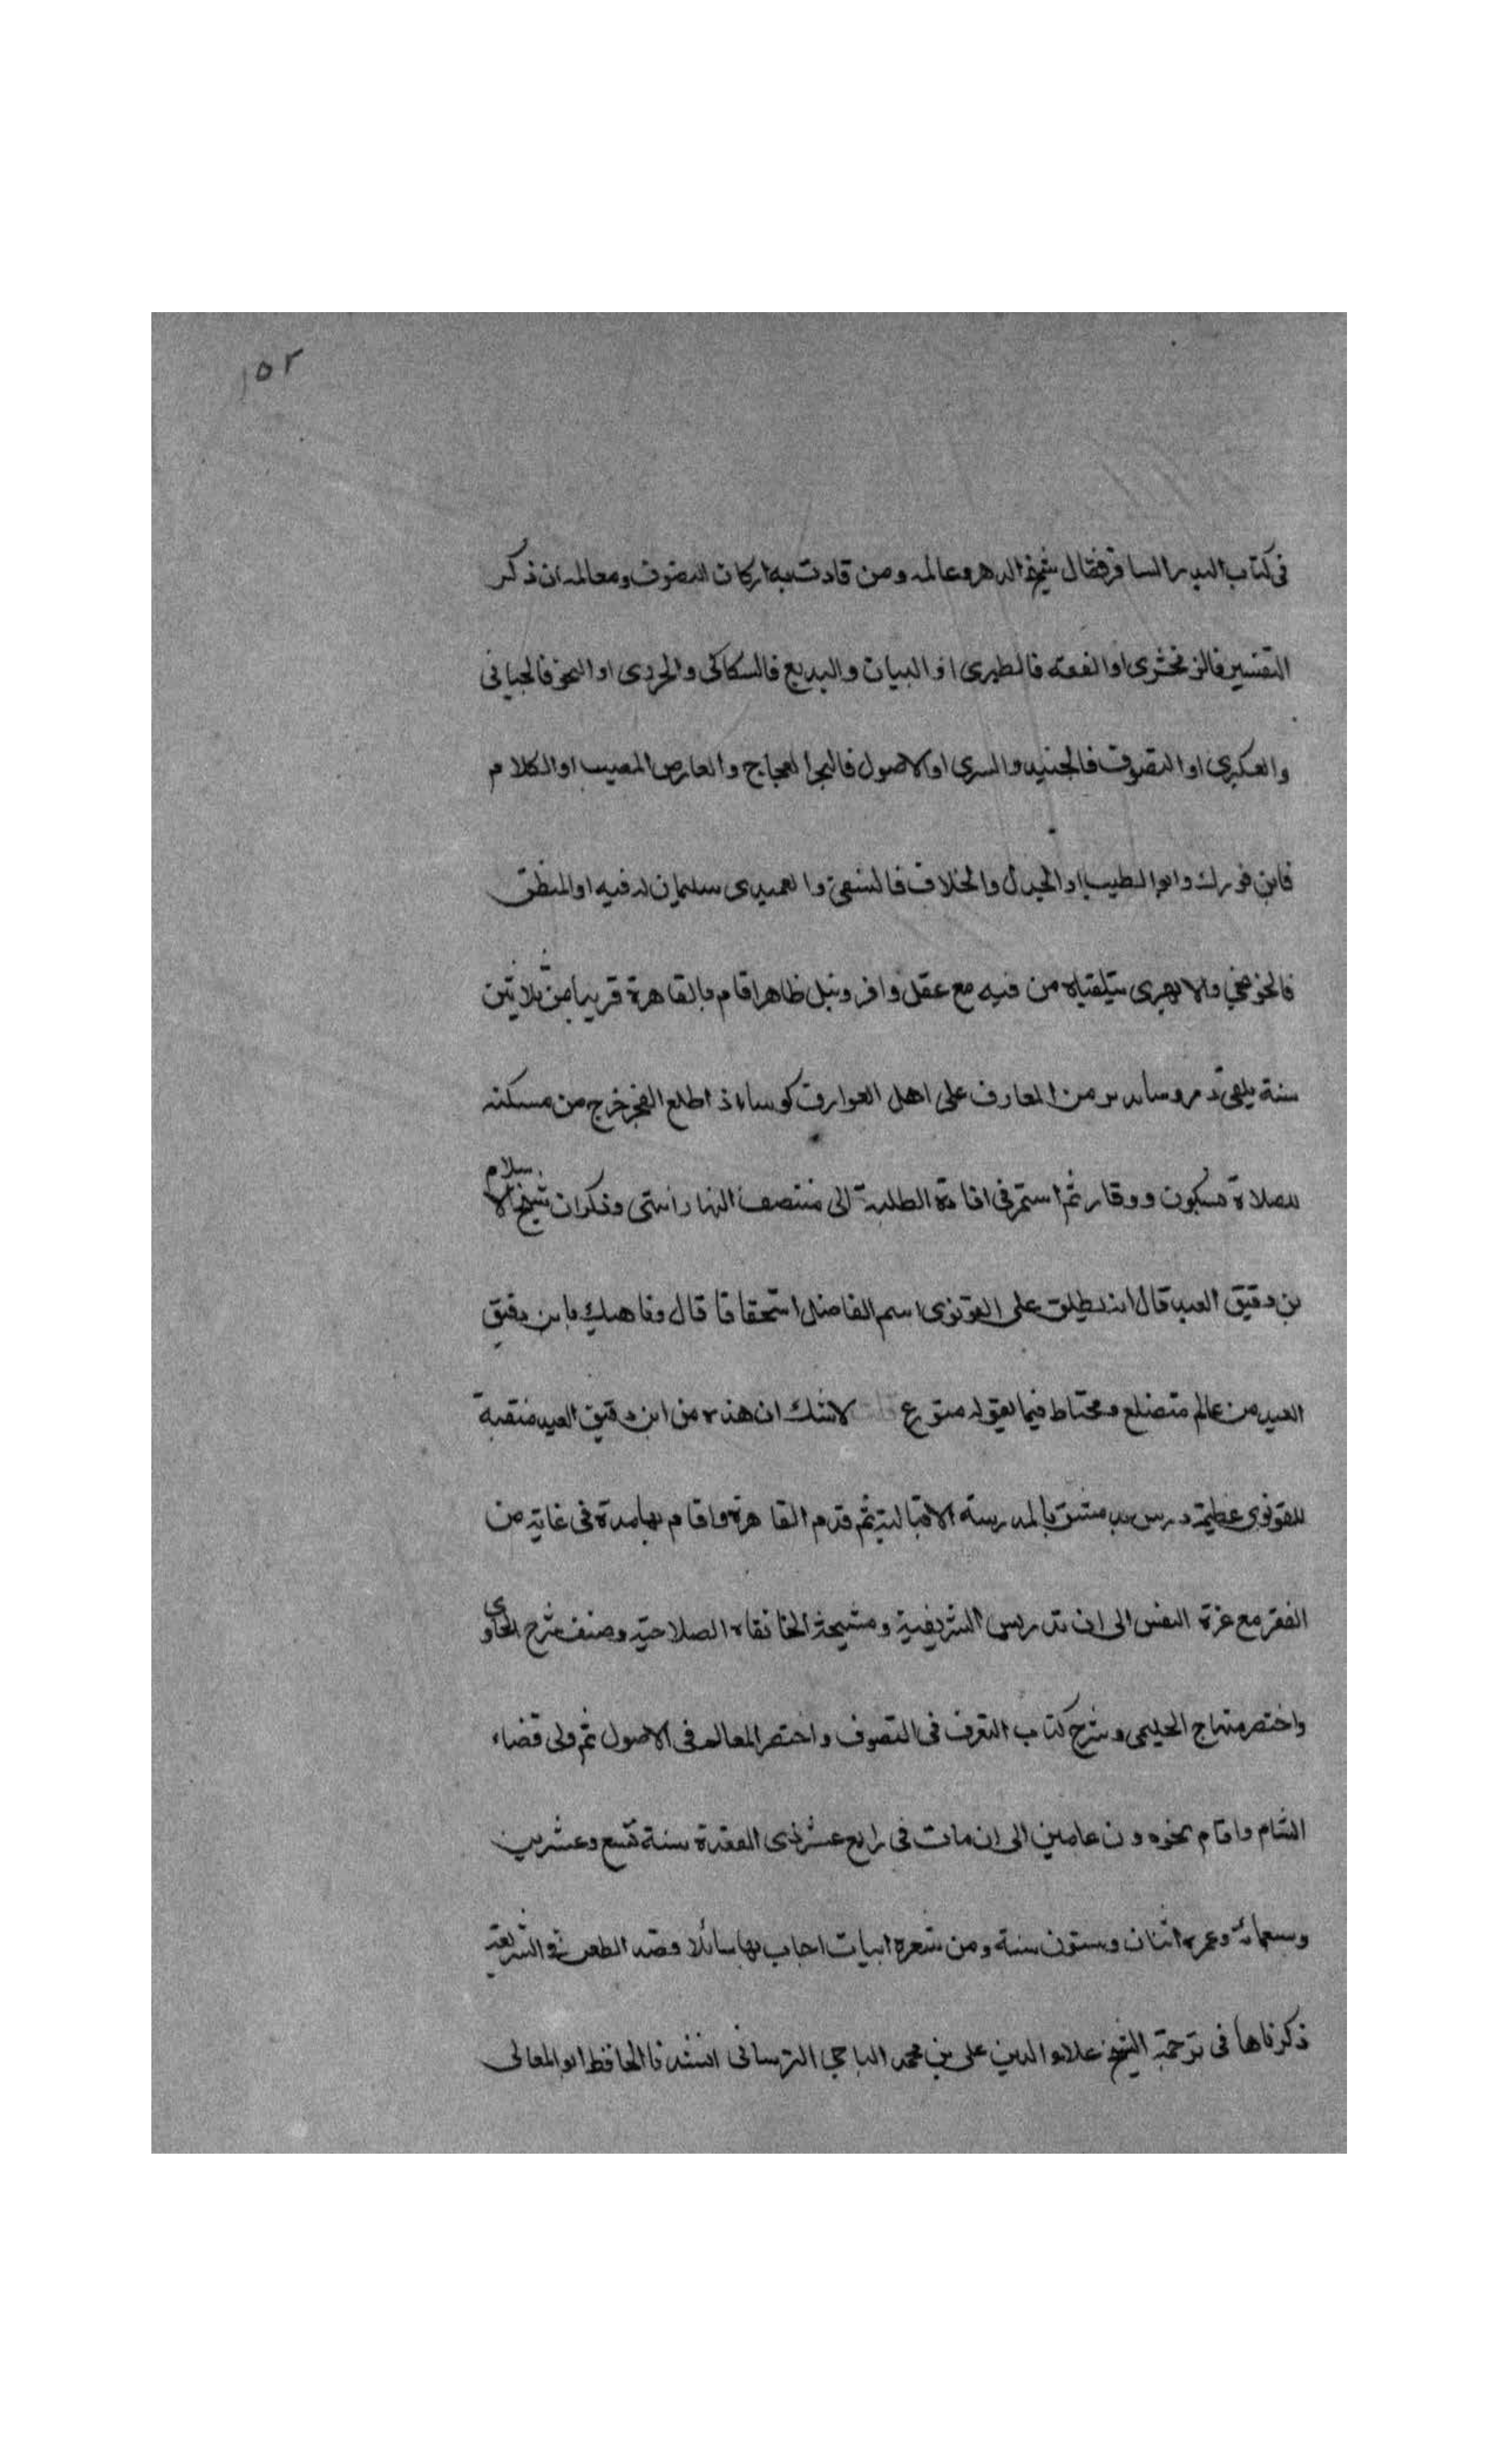 ١٥٢
فى كتاب البدر السافر فقال شيخ الدهر وعالمه ومن قادت به اركان التصوف ومعالمه ان ذكر
التفسير فالزمخشرى او الفقه فالطبرى او البيان والبديع فالسكاكى والجزرى او النحو فالجيانى
والعكبرى او التصوف فالجنيد والسرى او الاصول فالبحر العجاج والعارض المصيب او الكلام
فابن فورك وابو الطيب او الجدل والخلاف فالنسفى والعميدى سلمان له فيه او المنطق
فالخونجى والابهرى يتلقيانه من فيه مع عقل وافر ونبل ظاهر اقام بالقاهرة قريبا من ثلاثين
سنة من المعارف على اهل العوارف كوسا اذ اطلع الفجر خرج من مسكنه
للصلاة بسكون ووقار ثم استمر فى افادة الطلبة الى منتصف النهار انتهى وذكر ان شيخ الاسلام
بن دقيق العيد قال انه يطلق على القونوى اسم الفاضل استحقاقا قال وناهيك بابن دقيق
العيد من عالم متضلع ومحتاط فيما يقوله متورع لاشك ان هذه من ابن دقيق العيد منقبة
للقونوى عظيمة درس بدمشق بالمدرسة الاقبالية ثم قدم القاهرة واقام بها مدة فى غاية من
الفقر مع عزة النفس الى ان تدريس الشريفية ومشيخة الخانقاه الصلاحية وصنف شرح الحاوى
واختصر منهاج الحليمى وشرح كتاب التعرف فى التصوف واختصر المعالم فى الاصول ثم ولى قضاء
الشام واقام بنحوه دون عامين الى ان مات فى رابع عشر ذى القعدة سنة تسع وعشرين
وسبعمائة وعمره اثنان وستون سنة ومن شعره ابيات اجاب بها سائلا قصد الطعن فى الشريعة
ذكرناها فى ترجمة الشيخ علاء الدين على بن محمد الباجى انشدنا الحافظ ابو المعالى